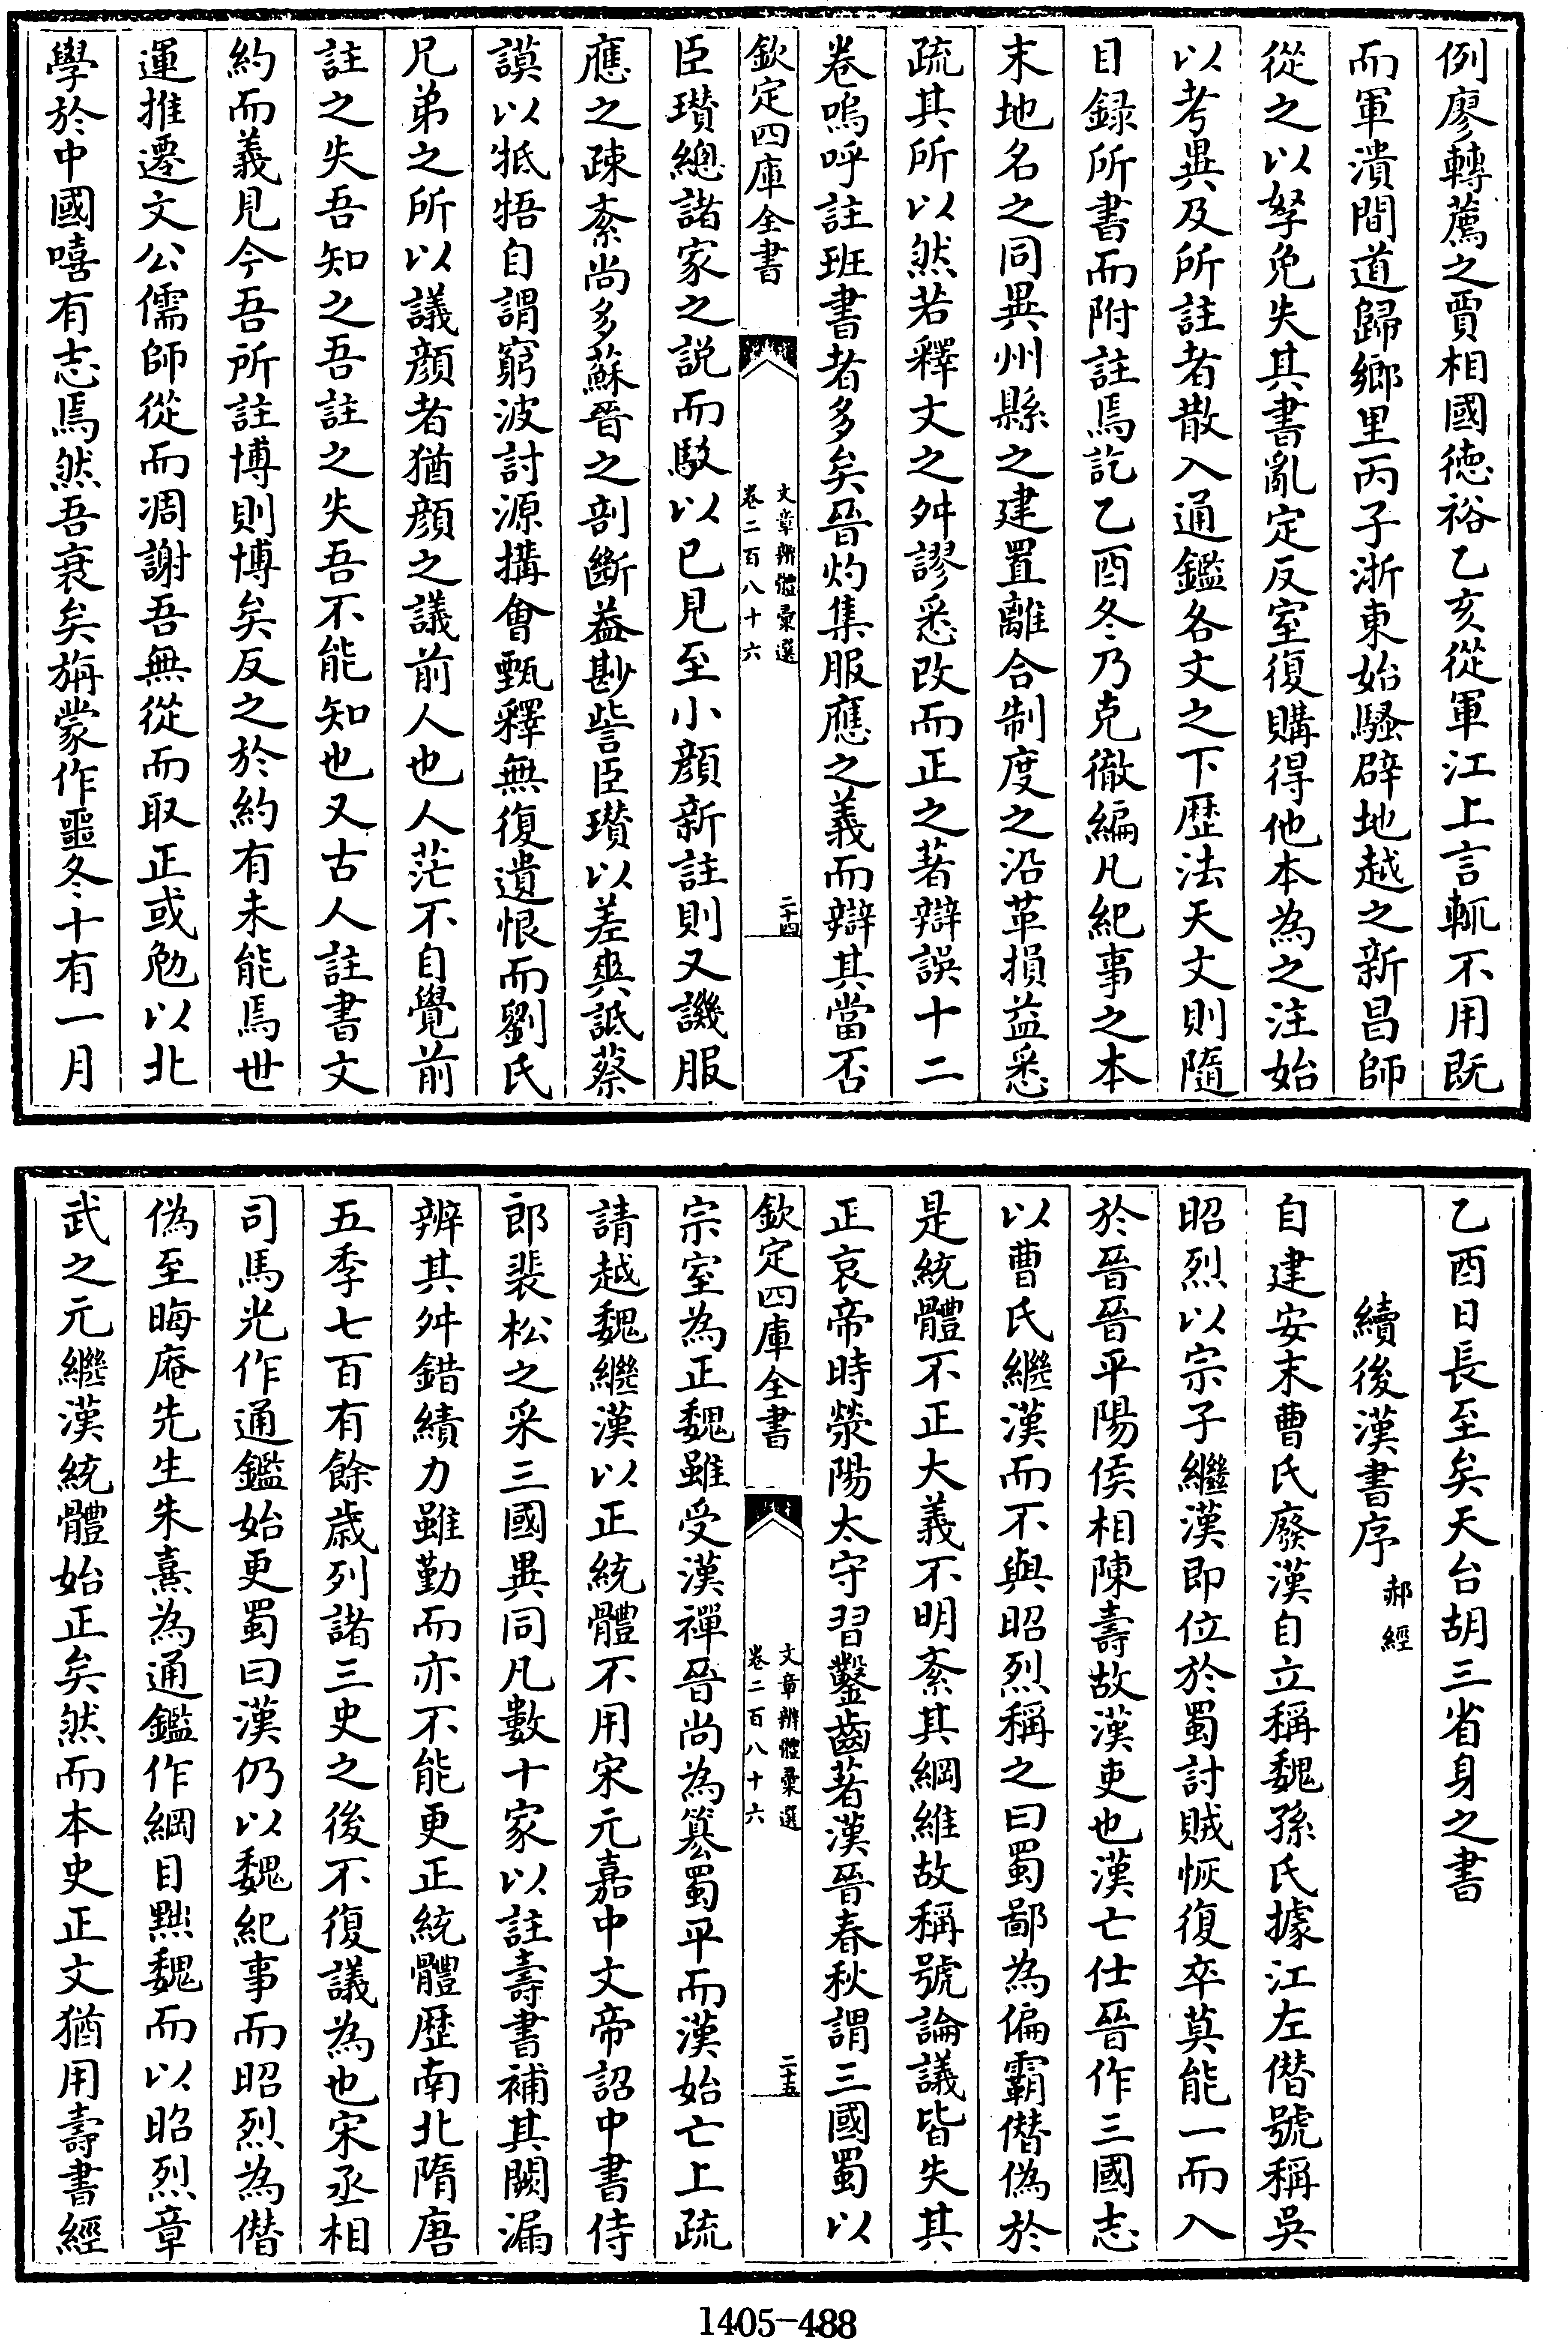 例廖轉薦之賈相國德裕乙亥從軍江上言輒不用既
而軍潰間道歸鄉里丙子浙東始騷辟地越之新昌師
從之以孥免失其書亂定反室復購得他本為之注始
以考異及所註者散入通鑑各文之下歴法天文則隨
目録所書而附註焉訖乙酉冬乃克徹編凡紀事之本
末地名之同異州縣之建置離合制度之沿革損益悉
疏其所以然若釋文之舛謬悉改而正之著辯誤十二
卷嗚呼註班書者多矣晉灼集服應之義而辯其當否
欽定四庫全書
文章辨體彙選
卷二百八十六
二十四
臣瓚總諸家之説而駮以已見至小顔新註則又譏服
應之疎紊尚多蘇晉之剖斷葢尠訾臣瓚以差爽詆蔡
謨以牴牾自謂窮波討源搆會甄釋無復遺恨而劉氏
兄弟之所以議顔者猶顔之議前人也人茫不自覺前
註之失吾知之吾註之失吾不能知也又古人註書文
約而義見今吾所註博則博矣反之於約有未能焉世
運推遷文公儒師從而凋謝吾無從而取正或勉以北
學於中國嘻有志焉然吾衰矣旃蒙作噩冬十有一月
乙酉日長至矣天台胡三省身之書
續後漢書序 郝經
自建安末曹氏廢漢自立稱魏孫氏據江左僣號稱吳
昭烈以宗子繼漢即位於蜀討賊恢復卒莫能一而入
於晉晉平陽侯相陳壽故漢吏也漢亡仕晉作三國志
以曹氏繼漢而不與昭烈稱之曰蜀鄙為偏霸僣偽於
是統體不正大義不明紊其綱維故稱號論議皆失其
正哀帝時滎陽太守習鑿齒著漢晉春秋謂三國蜀以
欽定四庫全書
文章辨體彙選
卷二百八十六
二十五
宗室為正魏雖受漢禪晉尚為簒蜀平而漢始亡上疏
請越魏繼漢以正統體不用宋元嘉中文帝詔中書侍
郎裴松之采三國異同凡數十家以註壽書補其闕漏
辨其舛錯績力雖勤而亦不能更正統體歴南北隋唐
五季七百有餘歳列諸三史之後不復議為也宋丞相
司馬光作通鑑始更蜀曰漢仍以魏紀事而昭烈為僣
偽至晦庵先生朱熹為通鑑作綱目黜魏而以昭烈章
武之元繼漢統體始正矣然而本史正文猶用壽書經
1405-488